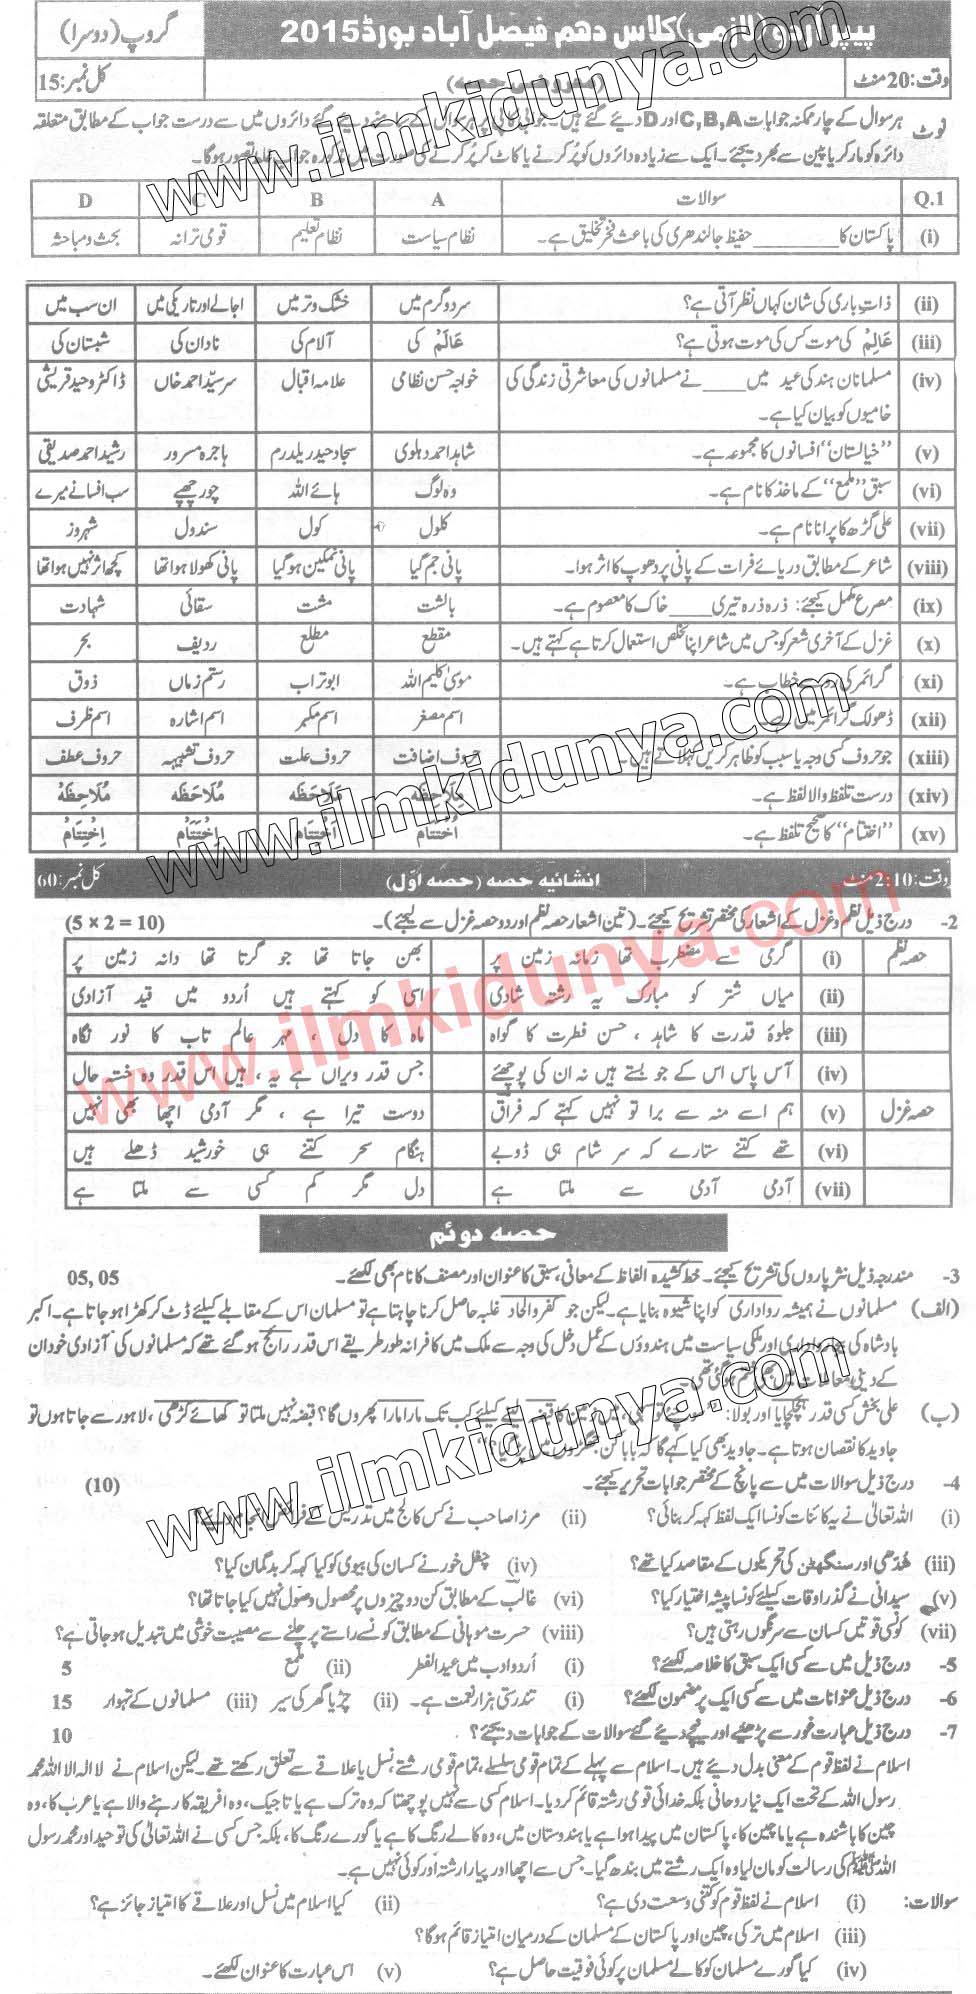 پیپر اُردو (لازمی) کلاس دہم فیصل آباد بورڈ 2015 گروپ (دوسرا)
وقت: 20 منٹ (معروضی حصہ) کل نمبر: 15
نوٹ ہر سوال کے چار ممکنہ جوابات C,B,A اور D دیے گئے ہیں۔ جوابی کاپی پر ہر سوال کے سامنے دیے گئے دائروں میں سے درست جواب کے مطابق متعلقہ
دائرہ کو مارکر یا پین سے بھر دیجئے۔ ایک سے زیادہ دائروں کو پُر کرنے یا کاٹ کر پُر کرنے کی صورت میں مذکورہ جواب غلط تصور ہوگا۔
Q.1 سوالات A B C D
(i) پاکستان کا ________ حفیظ جالندھری کی باعث فخر تخلیق ہے۔ نظام سیاست نظام تعلیم قومی ترانہ بحث و مباحثہ
(ii) ذاتِ باری کی شان کہاں نظر آتی ہے؟ سرد و گرم میں خشک و تر میں اجالے اور تاریکی میں ان سب میں
(iii) عَالِمْ کی موت کس کی موت ہوتی ہے؟ عَالَمْ کی آلام کی نادان کی شبستان کی
(iv) مسلمانان ہند کی عید میں ____ نے مسلمانوں کی معاشرتی زندگی کی خواجہ حسن نظامی علامہ اقبال سر سیّد احمد خاں ڈاکٹر وحید قریشی
خامیوں کو بیان کیا ہے۔
(v) ”خیالستان“ افسانوں کا مجموعہ ہے۔ شاہد احمد دہلوی سجاد حیدر یلدرم ہاجرہ مسرور رشید احمد صدیقی
(vi) سبق ”ملمع“ کے ماخذ کا نام ہے۔ وہ لوگ ہائے اللہ چوری چھپے سب افسانے میرے
(vii) علی گڑھ کا پرانا نام ہے۔ کلول کول سندول شہروز
(viii) شاعر کے مطابق دریائے فرات کے پانی پر دھوپ کا اثر ہوا۔ پانی جم گیا پانی نمکین ہو گیا پانی کھولا ہوا تھا کچھ اثر نہیں ہوا تھا
(ix) مصرع مکمل کیجئے: ذرہ ذرہ تیری ____ خاک کا معصوم ہے۔ بالشت مشت سقائی شہادت
(x) غزل کے آخری شعر کو جس میں شاعر اپنا تخلص استعمال کرتا ہے کہتے ہیں۔ مقطع مطلع ردیف بحر
(xi) گرائمر کی رو سے خطاب ہے۔ موسیٰ کلیم اللہ ابوتراب رستم زماں ذوق
(xii) ڈھولک گرائمر میں ہے۔ اسم مصغر اسم مکبر اسم اشارہ اسم ظرف
(xiii) جو حروف کسی وجہ یا سبب کو ظاہر کریں کہلاتے ہیں۔ حروف اضافت حروف علت حروف تشبیہہ حروف عطف
(xiv) درست تلفظ والا لفظ ہے۔
(xv) ”اختتام“ کا صحیح تلفظ ہے۔
وقت: 2:10 منٹ انشائیہ حصہ (حصہ اوّل) کل نمبر: 60
2- درج ذیل نظم و غزل کے اشعار کی مختصر تشریح کیجئے۔ (تین اشعار حصہ نظم اور دو حصہ غزل سے لیجئے)۔ (5 × 2 = 10)
حصہ نظم (i) گرمی سے مضطرب تھا زمانہ زمین پر بھن جاتا تھا جو گرتا تھا دانہ زمین پر
(ii) میاں شتر کو مبارک یہ رشتہ شادی اسی کو کہتے ہیں اُردو میں قید آزادی
(iii) جلوۂ قدرت کا شاہد ، حسن فطرت کا گواہ ماہ کا دل ، مہر عالم تاب کا نور نگاہ
(iv) آس پاس اس کے جو بستے ہیں نہ ان کی پوچھئے جس قدر ویراں ہے یہ ، ہیں اس قدر وہ خستہ حال
حصہ غزل (v) ہم اسے منہ سے برا تو نہیں کہتے کہ فراق دوست تیرا ہے ، مگر آدمی اچھا بھی نہیں
(vi) تھے کتنے ستارے کہ سر شام ہی ڈوبے ہنگام سحر کتنے ہی خورشید ڈھلے ہیں
(vii) آدمی آدمی سے ملتا ہے دل مگر کم کسی سے ملتا ہے
حصہ دوئم
3- مندرجہ ذیل نثر پاروں کی تشریح کیجئے۔ خط کشیدہ الفاظ کے معانی، سبق کا عنوان اور مصنف کا نام بھی لکھئے۔ 05, 05
(الف) مسلمانوں نے ہمیشہ رواداری کو اپنا شیوہ بنایا ہے۔ لیکن جو کفر و الحاد غلبہ حاصل کرنا چاہتا ہے تو مسلمان اس کے مقابلے کیلئے ڈٹ کر کھڑا ہو جاتا ہے۔ اکبر
بادشاہ کی بے جا رواداری اور ملکی سیاست میں ہندوؤں کے عمل دخل کی وجہ سے ملک میں کافرانہ طور طریقے اس قدر رائج ہو گئے تھے کہ مسلمانوں کی آزادی خود ان
کے دینی معاملات میں بھی ختم ہو گئی تھی۔
(ب) علی بخش کسی قدر ہچکچایا اور بولا: سوچنے تو سہی، میں زمین کا قبضہ لینے کیلئے کب تک مارا مارا پھروں گا؟ قبضہ نہیں ملتا تو کھائے کڑھی، لاہور سے جاتا ہوں تو
جاوید کا نقصان ہوتا ہے۔ جاوید بھی کیا کہے گا کہ بابا کن جھگڑوں میں پڑ گیا؟“
4- درج ذیل سوالات میں سے پانچ کے مختصر جوابات تحریر کیجئے۔ (10)
(i) اللہ تعالیٰ نے یہ کائنات کونسا ایک لفظ کہہ کر بنائی؟ (ii) مرزا صاحب نے کس کالج میں تدریس کے فرائض انجام دیے؟
(iii) شدھی اور سنگھٹن کی تحریکوں کے مقاصد کیا تھے؟ (iv) چغل خور نے کسان کی بیوی کو کیا کہہ کر بدگمان کیا؟
(v) سیدانی نے گذر اوقات کیلئے کونسا پیشہ اختیار کیا؟ (vi) غالب کے مطابق کن دو چیزوں پر محصول وصول نہیں کیا جاتا تھا؟
(vii) کونسی قوتیں کسان سے سرنگوں رہتی ہیں؟ (viii) حسرت موہانی کے مطابق کونسے راستے پر چلنے سے مصیبت خوشی میں تبدیل ہو جاتی ہے؟
5- درج ذیل میں سے کسی ایک سبق کا خلاصہ لکھئے؟ (i) اُردو ادب میں عید الفطر (ii) ملمع 5
6- درج ذیل عنوانات میں سے کسی ایک پر مضمون لکھئے؟ (i) تندرستی ہزار نعمت ہے۔ (ii) چڑیا گھر کی سیر (iii) مسلمانوں کے تہوار 15
7- درج ذیل عبارت غور سے پڑھئیے اور نیچے دیے گئے سوالات کے جوابات دیجئے؟ 10
اسلام نے لفظ قوم کے معنی بدل دیے ہیں۔ اسلام سے پہلے کے تمام قومی سلسلے، تمام قومی رشتے، نسل یا علاقے سے تعلق رکھتے تھے۔ لیکن اسلام نے لا الہ الا اللہ محمد
رسول اللہ کے تحت ایک نیا روحانی بلکہ خدائی قومی رشتہ قائم کر دیا۔ اسلام کسی سے نہیں پوچھتا کہ وہ ترک ہے یا تاجیک، وہ افریقہ کا رہنے والا ہے یا عرب کا، وہ
چین کا باشندہ ہے یا ماچین کا، پاکستان میں پیدا ہوا ہے یا ہندوستان میں، وہ کالے رنگ کا ہے یا گورے رنگ کا، بلکہ جس کسی نے اللہ تعالیٰ کی توحید اور محمد رسول
اللہ ﷺ کی رسالت کو مان لیا وہ ایک رشتے میں بندھ گیا۔ جس سے اچھا اور پیارا رشتہ اور کوئی نہیں ہے۔
سوالات: (i) اسلام نے لفظ قوم کو کتنی وسعت دی ہے؟ (ii) کیا اسلام میں نسل اور علاقے کا امتیاز جائز ہے؟
(iii) اسلام میں ترکی، چین اور پاکستان کے مسلمان کے درمیان امتیاز قائم ہو گا؟
(iv) کیا گورے مسلمان کو کالے مسلمان پر کوئی فوقیت حاصل ہے؟ (v) اس عبارت کا عنوان لکھئے۔
www.ilmkidunya.com
www.ilmkidunya.com
www.ilmkidunya.com
www.ilmkidunya.com